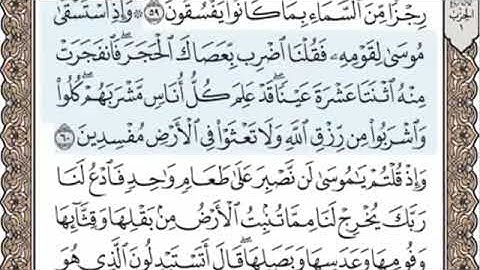 رِجْزًا مِّنَ ٱلسَّمَآءِ بِمَا كَانُوا۟ يَفْسُقُونَ ٥٩ وَإِذِ ٱسْتَسْقَىٰ
مُوسَىٰ لِقَوْمِهِۦ فَقُلْنَا ٱضْرِب بِّعَصَاكَ ٱلْحَجَرَ ۖ فَٱنفَجَرَتْ
مِنْهُ ٱثْنَتَا عَشْرَةَ عَيْنًا ۖ قَدْ عَلِمَ كُلُّ أُنَاسٍ مَّشْرَبَهُمْ ۖ كُلُوا۟
وَٱشْرَبُوا۟ مِن رِّزْقِ ٱللَّهِ وَلَا تَعْثَوْا۟ فِى ٱلْأَرْضِ مُفْسِدِينَ ٦٠
وَإِذْ قُلْتُمْ يَـٰمُوسَىٰ لَن نَّصْبِرَ عَلَىٰ طَعَامٍ وَٰحِدٍ فَٱدْعُ لَنَا
رَبَّكَ يُخْرِجْ لَنَا مِمَّا تُنۢبِتُ ٱلْأَرْضُ مِنۢ بَقْلِهَا وَقِثَّآئِهَا
وَفُومِهَا وَعَدَسِهَا وَبَصَلِهَا ۖ قَالَ أَتَسْتَبْدِلُونَ ٱلَّذِى هُوَ
الحزب
١